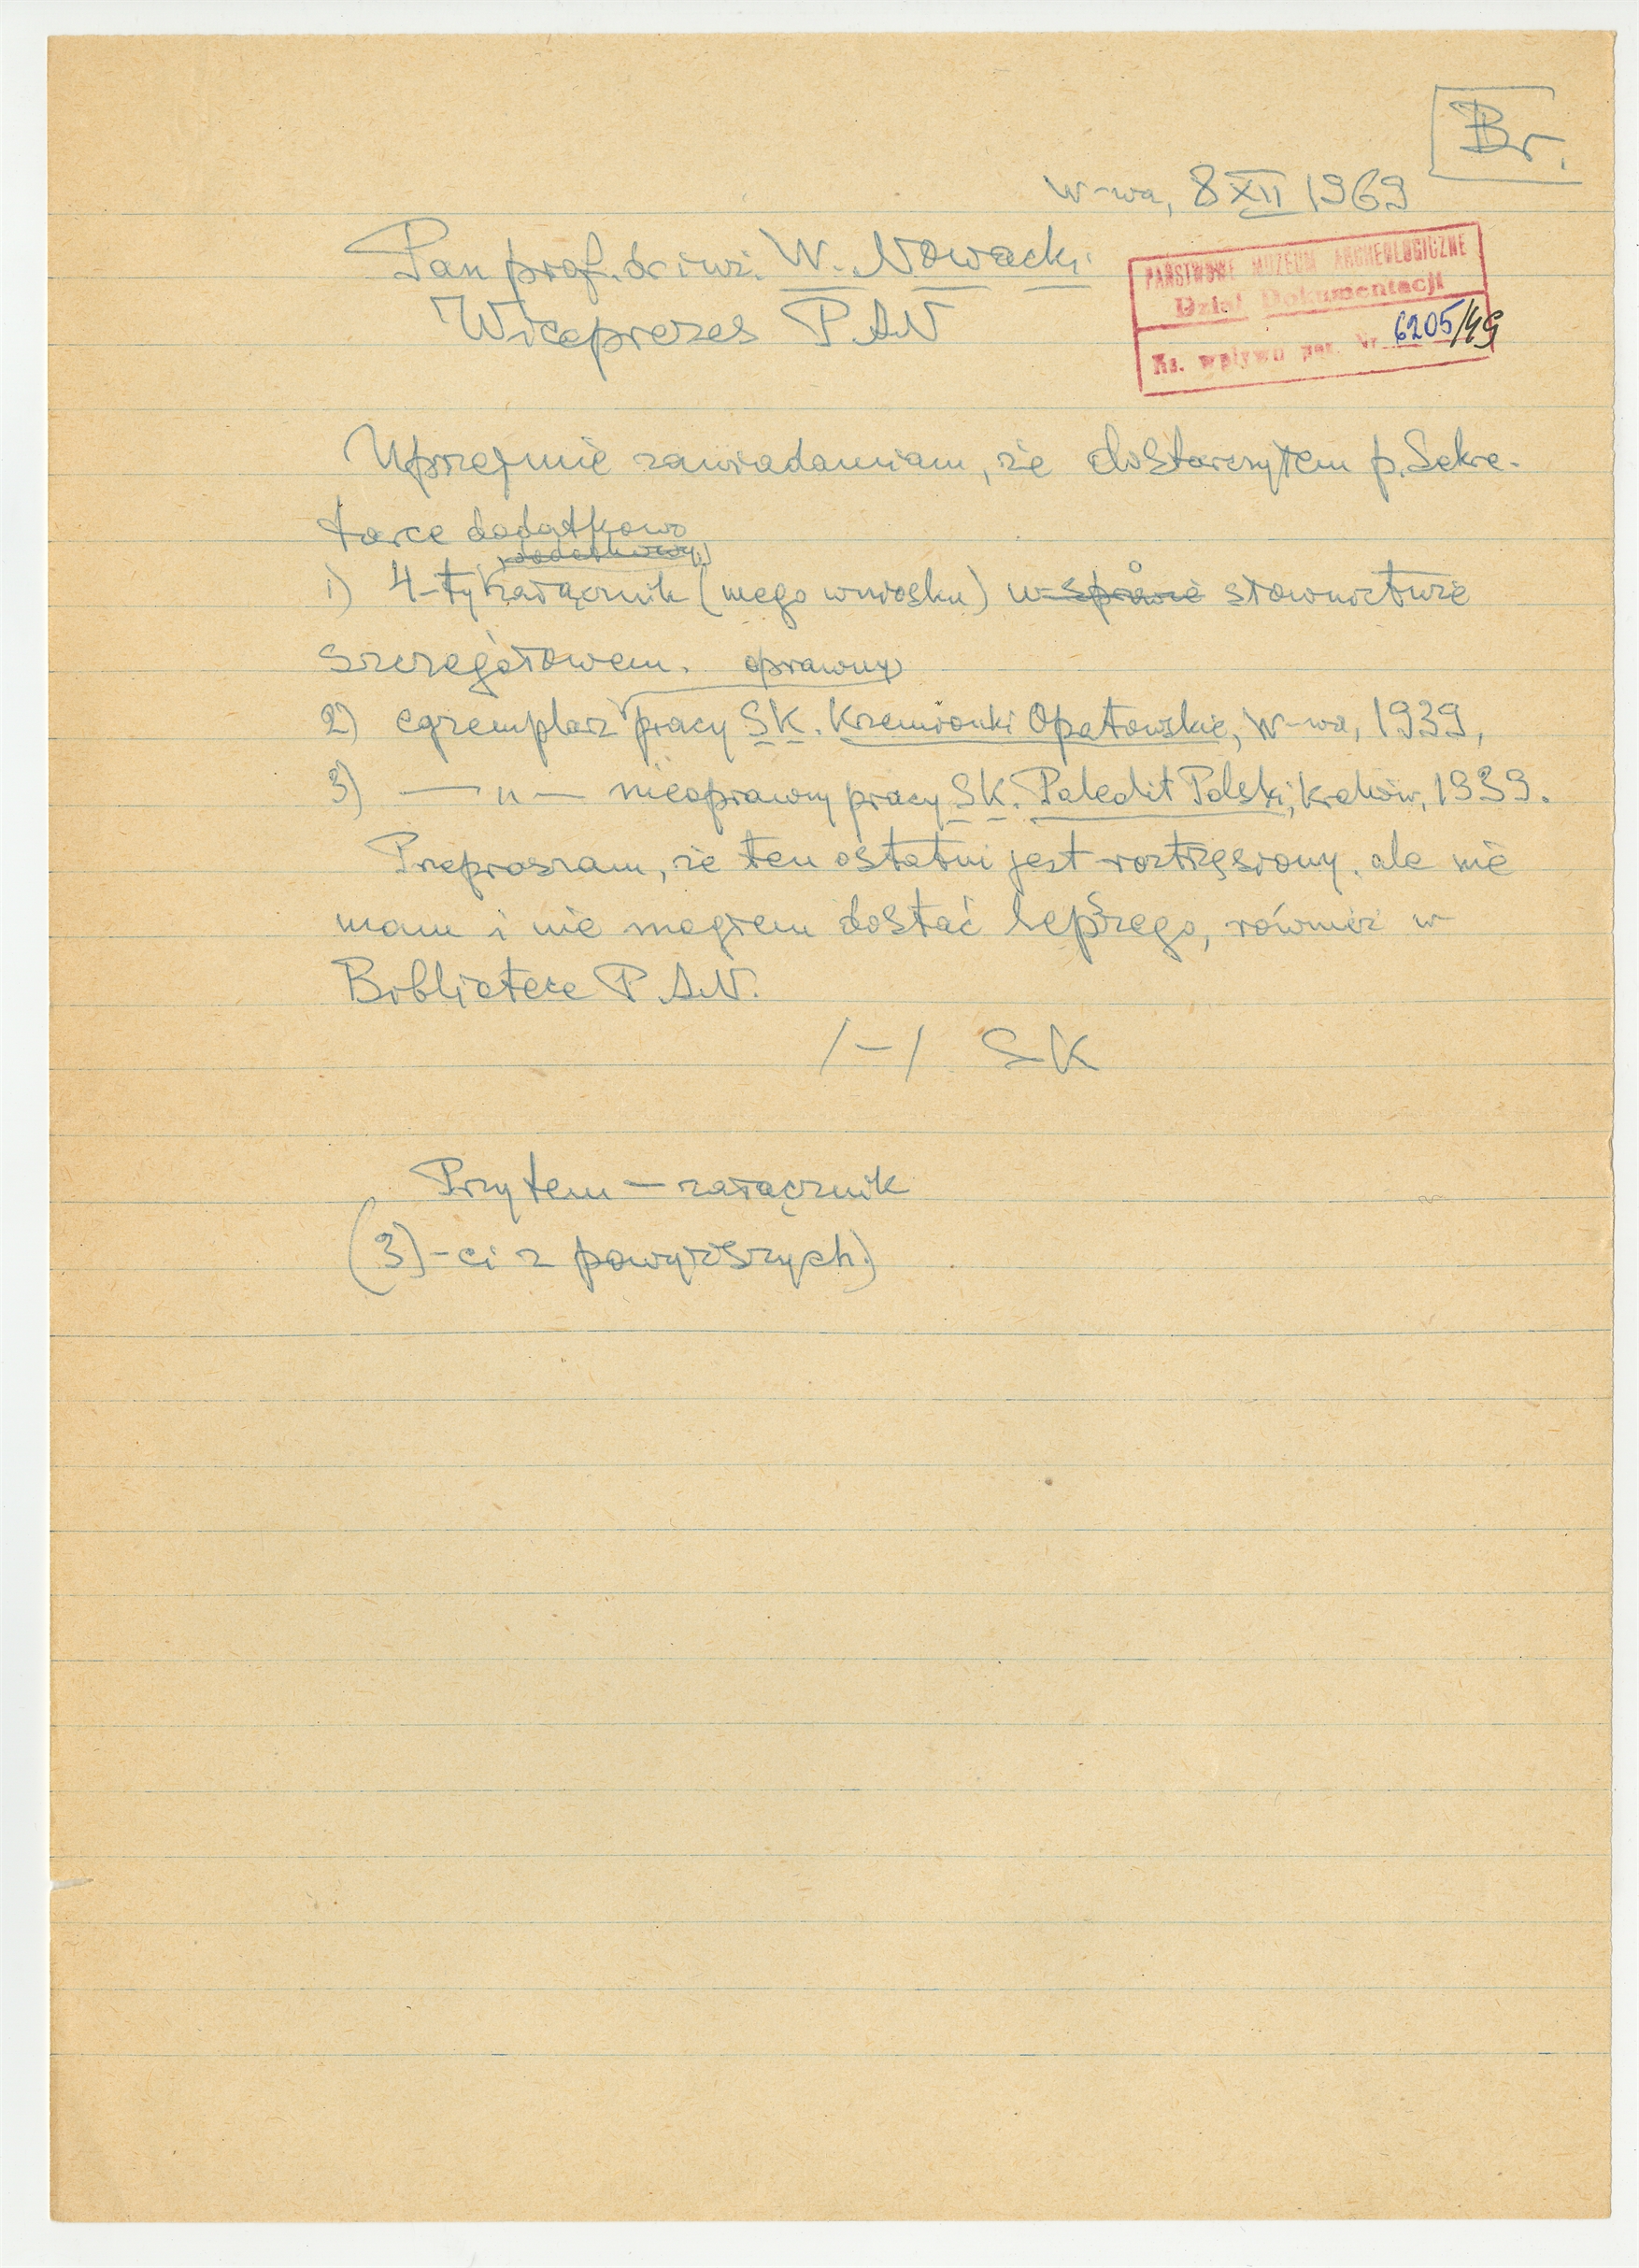 Br.
W-wa, 8 XII 1969
Pan prof. dr inż. W. Nowacki
Wiceprezes PAN
PAŃSTWOWE MUZEUM ARCHEOLOGICZNE
Dział Dokumentacji
Ks. wpływu poz. Nr 6205/49
Uprzejmie zawiadamiam, że dostarczyłem p. Sekre-
tarce dodatkowo
dodatkowy
1) 4-ty załącznik (mego wniosku) w sprawie o słownictwie
szczegółowem.
oprawny
2) egzemplarz pracy SK. Krzemionki Opatowskie, W-wa, 1939,
3) —„— nieoprawny pracy SK. Paleolit Polski, Kraków, 1939.
Przepraszam, że ten ostatni jest roztrzęsiony, ale nie
mam i nie mogłem dostać lepszego, również w
Bibliotece PAN.
/-/ SK
Przytem – załącznik
(3)-ci z powyższych.)